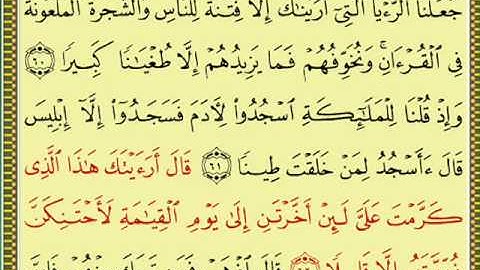 جَعَلْنَا ٱلرُّءْيَا ٱلَّتِىٓ أَرَيْنَـٰكَ إِلَّا فِتْنَةً لِّلنَّاسِ وَٱلشَّجَرَةَ ٱلْمَلْعُونَةَ
فِى ٱلْقُرْءَانِ ۚ وَنُخَوِّفُهُمْ فَمَا يَزِيدُهُمْ إِلَّا طُغْيَـٰنًا كَبِيرًا ٦٠
وَإِذْ قُلْنَا لِلْمَلَـٰٓئِكَةِ ٱسْجُدُوا۟ لِـَٔادَمَ فَسَجَدُوٓا۟ إِلَّآ إِبْلِيسَ
قَالَ ءَأَسْجُدُ لِمَنْ خَلَقْتَ طِينًا ٦١ قَالَ أَرَءَيْتَكَ هَـٰذَا ٱلَّذِى
كَرَّمْتَ عَلَىَّ لَئِنْ أَخَّرْتَنِ إِلَىٰ يَوْمِ ٱلْقِيَـٰمَةِ لَأَحْتَنِكَنَّ